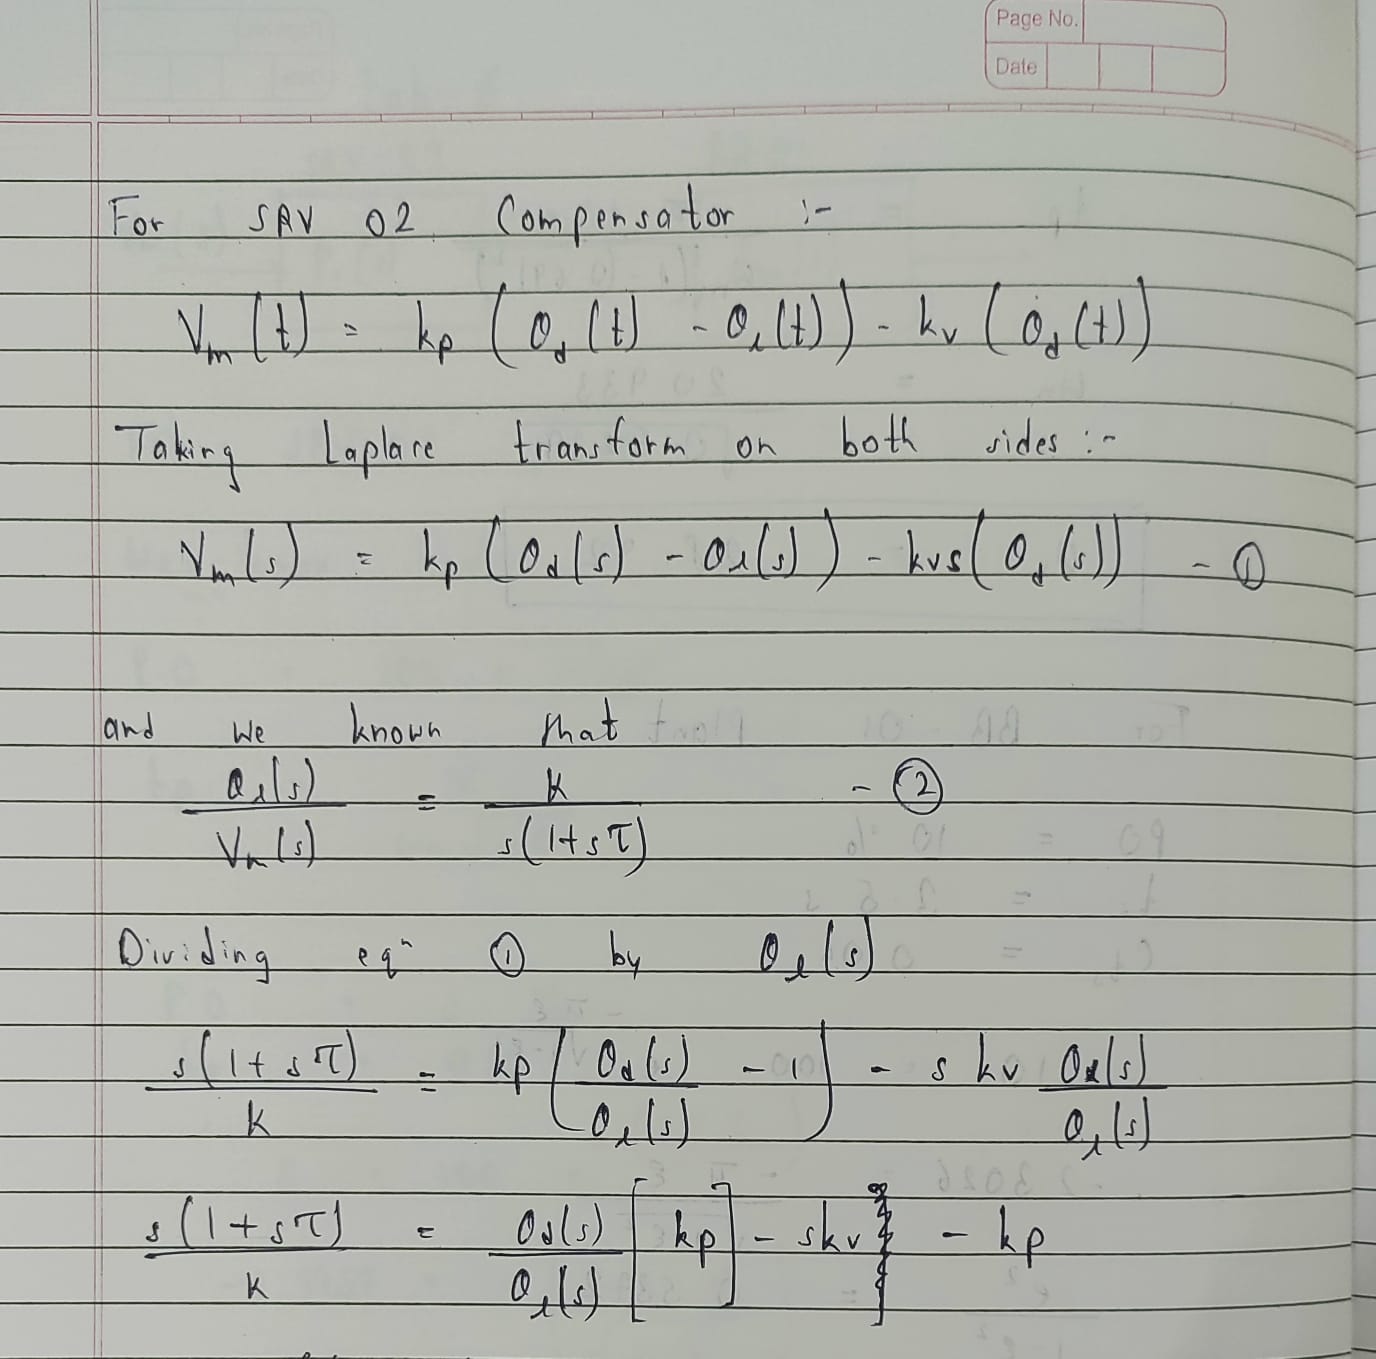 Page No.
Date
For SRV 02 Compensator :-
Vm(t) = kp (θd(t) - θl(t)) - kv (θ̇d(t))
Taking Laplace transform on both sides :-
Vm(s) = kp (θd(s) - θl(s)) - kvs(θd(s)) - ①
and we known that
θl(s) / Vm(s) = K / s(1+sτ) - ②
Dividing eqⁿ ① by θl(s)
s(1+sτ) / K = kp (θd(s) / θl(s) - 1) - s kv θd(s) / θl(s)
s(1+sτ) / K = θd(s) / θl(s) [kp] - skv - kp